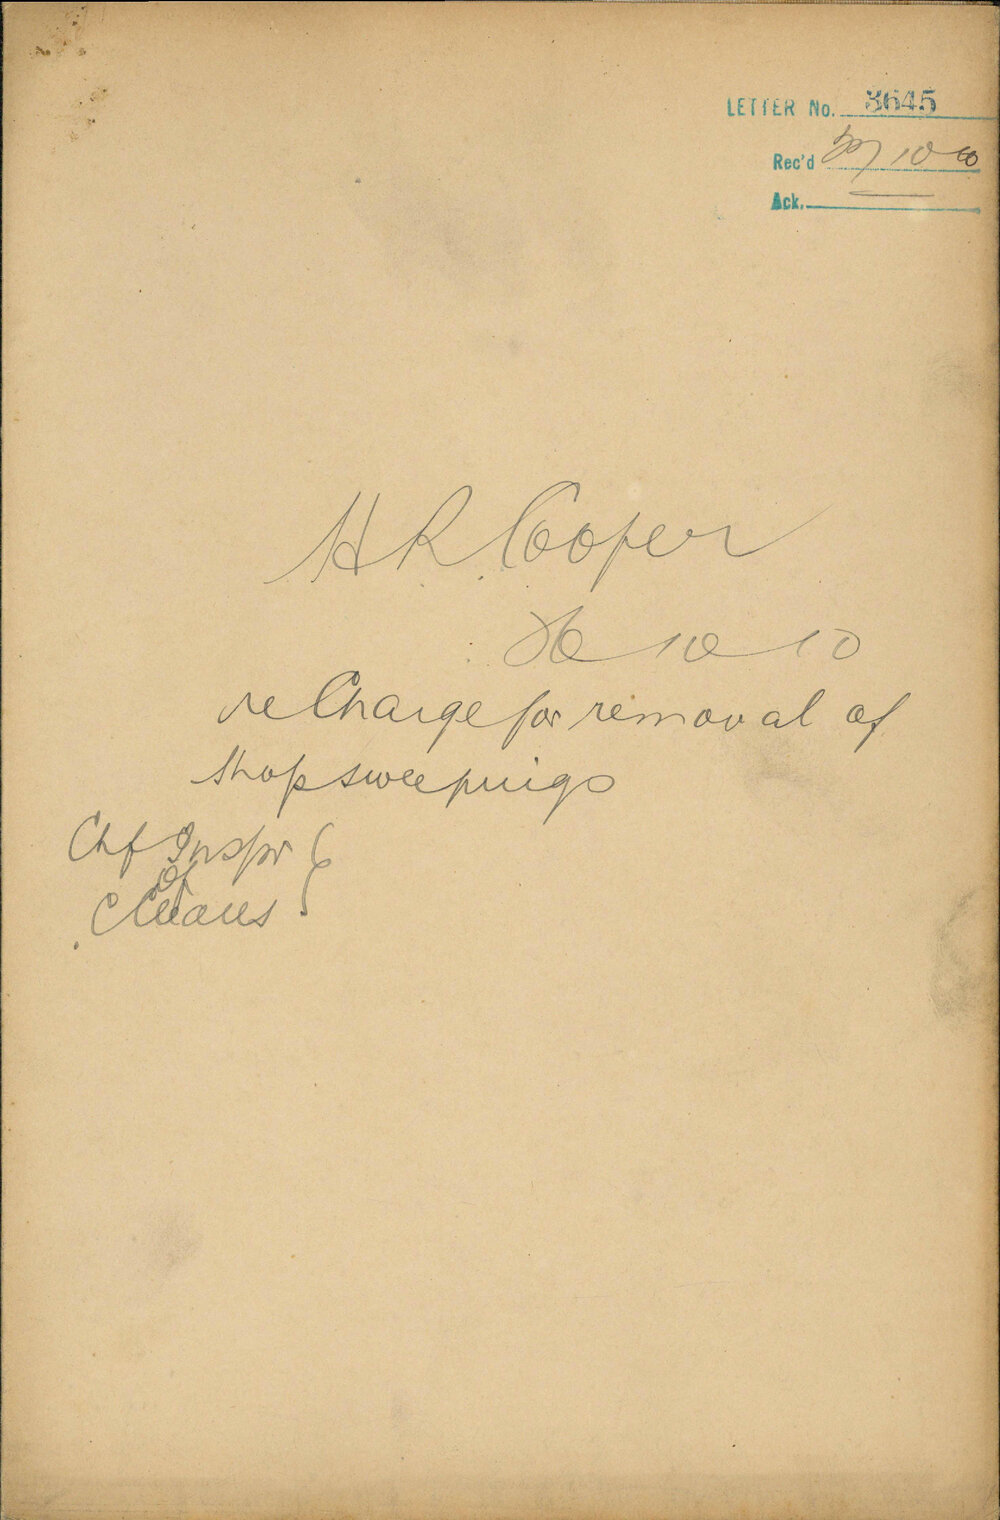 LETTER No. 3645
Rec'd 27 10 10
Ack.
H R Cooper
26 10 10
re Charge for removal of
shop sweepings
Chf Inspr
of